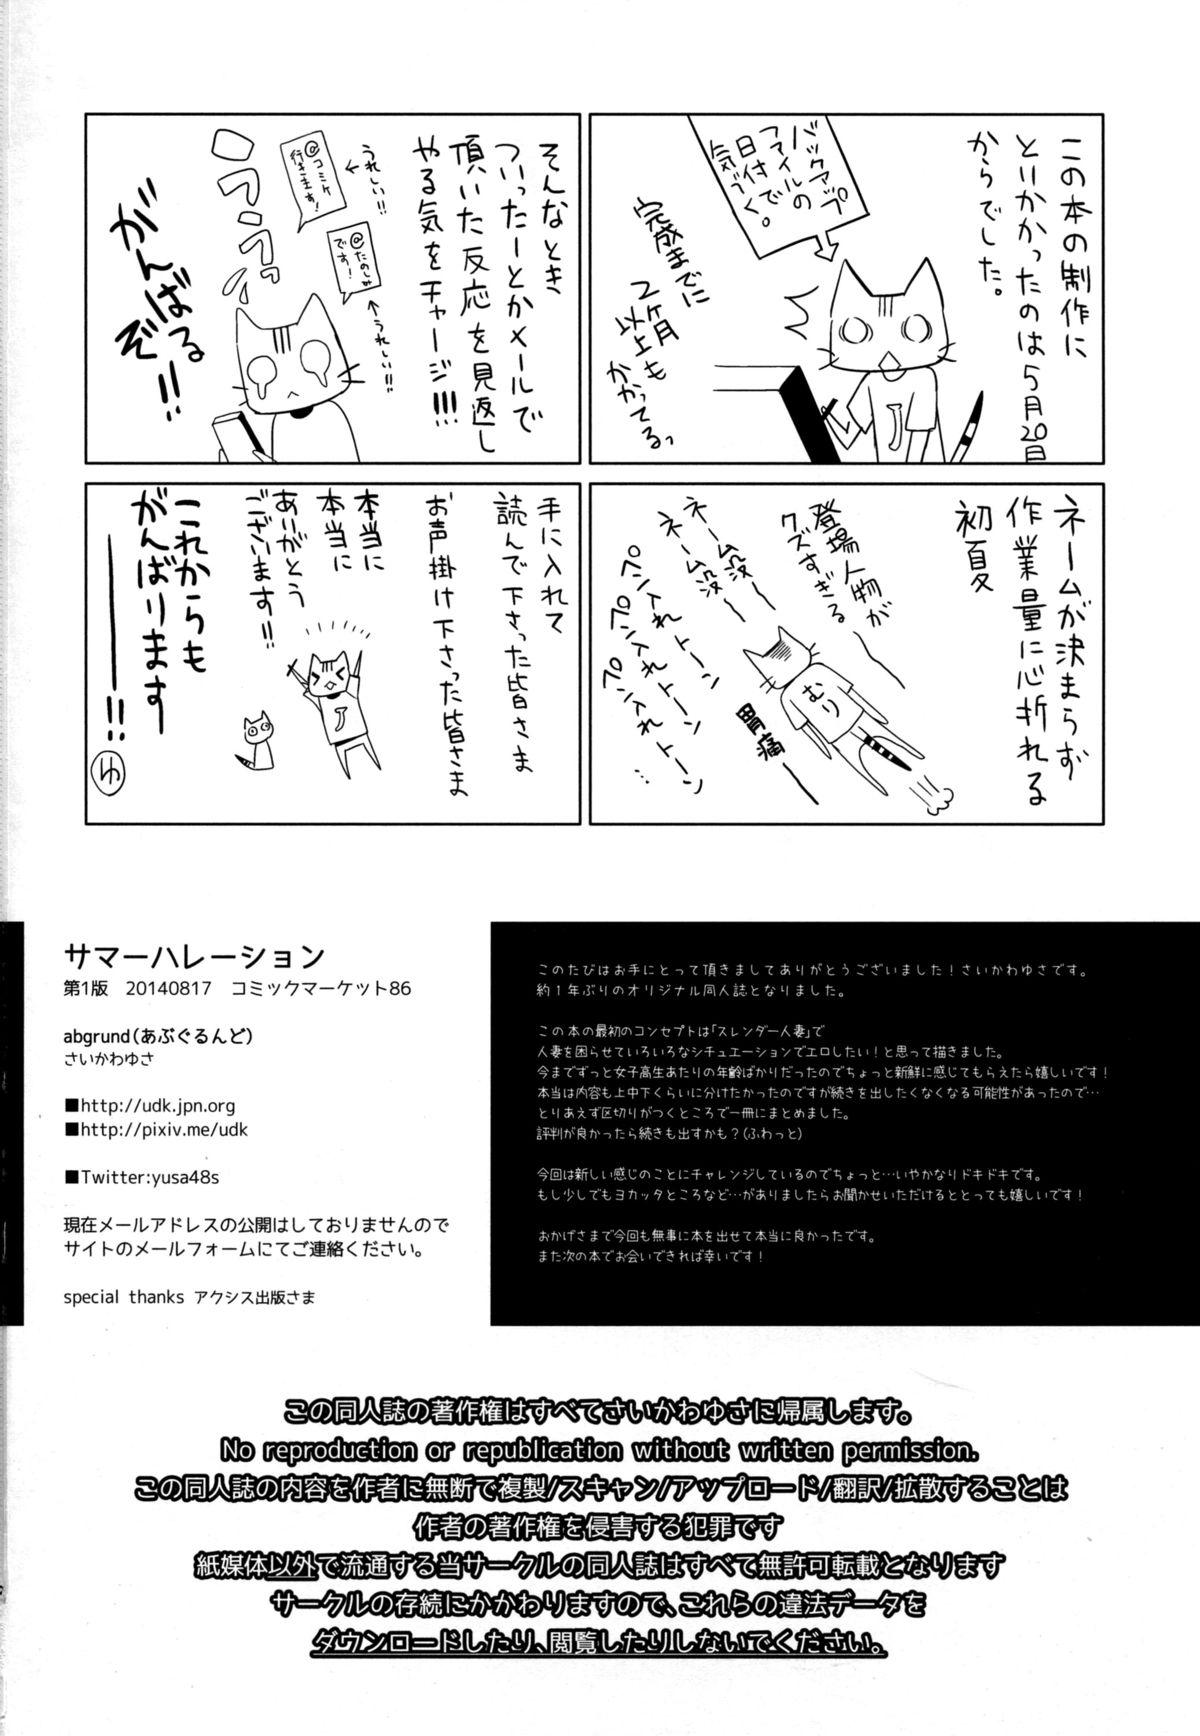 この本の制作に
とりかかったのは5月20日
からでした。
バックアップ
ファイルの
日付で
気づく。
完成までに
2ヶ月
以上も
かかってるっ
ネームが決まらず
作業量に心折れる
初夏
登場人物が
クズすぎるー
ネーム没ー
ネーム没ー
ペン入れトーン
ペン入れトーン
ペン入れトーン…
むり
胃痛ー
そんなとき
ついったーとかメールで
頂いた反応を見返し
やる気をチャージ!!!
うれしい!!
@コミケ
行きます!
@たのしみ
です!
うれしい!!
がんばる
ぞ!!
手に入れて
読んで下さった皆さま
お声掛け下さった皆さま
本当に
本当に
ありがとう
ございます!!
これからも
がんばります
ーー!!
ゆ
サマーハレーション
第1版 20140817 コミックマーケット86
abgrund(あぶぐるんど)
さいかわゆさ
■http://udk.jpn.org
■http://pixiv.me/udk
■Twitter:yusa48s
現在メールアドレスの公開はしておりませんので
サイトのメールフォームにてご連絡ください。
special thanks アクシス出版さま
このたびはお手にとって頂きましてありがとうございました!さいかわゆさです。
約1年ぶりのオリジナル同人誌となりました。
この本の最初のコンセプトは「スレンダー人妻」で
人妻を困らせていろいろなシチュエーションでエロしたい!と思って描きました。
今までずっと女子高生あたりの年齢ばかりだったのでちょっと新鮮に感じてもらえたら嬉しいです!
本当は内容も上中下くらいに分けたかったのですが続きを出したくなくなる可能性があったので…
とりあえず区切りがつくところで一冊にまとめました。
評判が良かったら続きも出すかも?(ふわっと)
今回は新しい感じのことにチャレンジしているのでちょっと…いやかなりドキドキです。
もし少しでもヨカッタところなど…がありましたらお聞かせいただけるととっても嬉しいです!
おかげさまで今回も無事に本を出せて本当に良かったです。
また次の本でお会いできれば幸いです!
この同人誌の著作権はすべてさいかわゆさに帰属します。
No reproduction or republication without written permission.
この同人誌の内容を作者に無断で複製/スキャン/アップロード/翻訳/拡散することは
作者の著作権を侵害する犯罪です
紙媒体以外で流通する当サークルの同人誌はすべて無許可転載となります
サークルの存続にかかわりますので、これらの違法データを
ダウンロードしたり、閲覧したりしないでください。